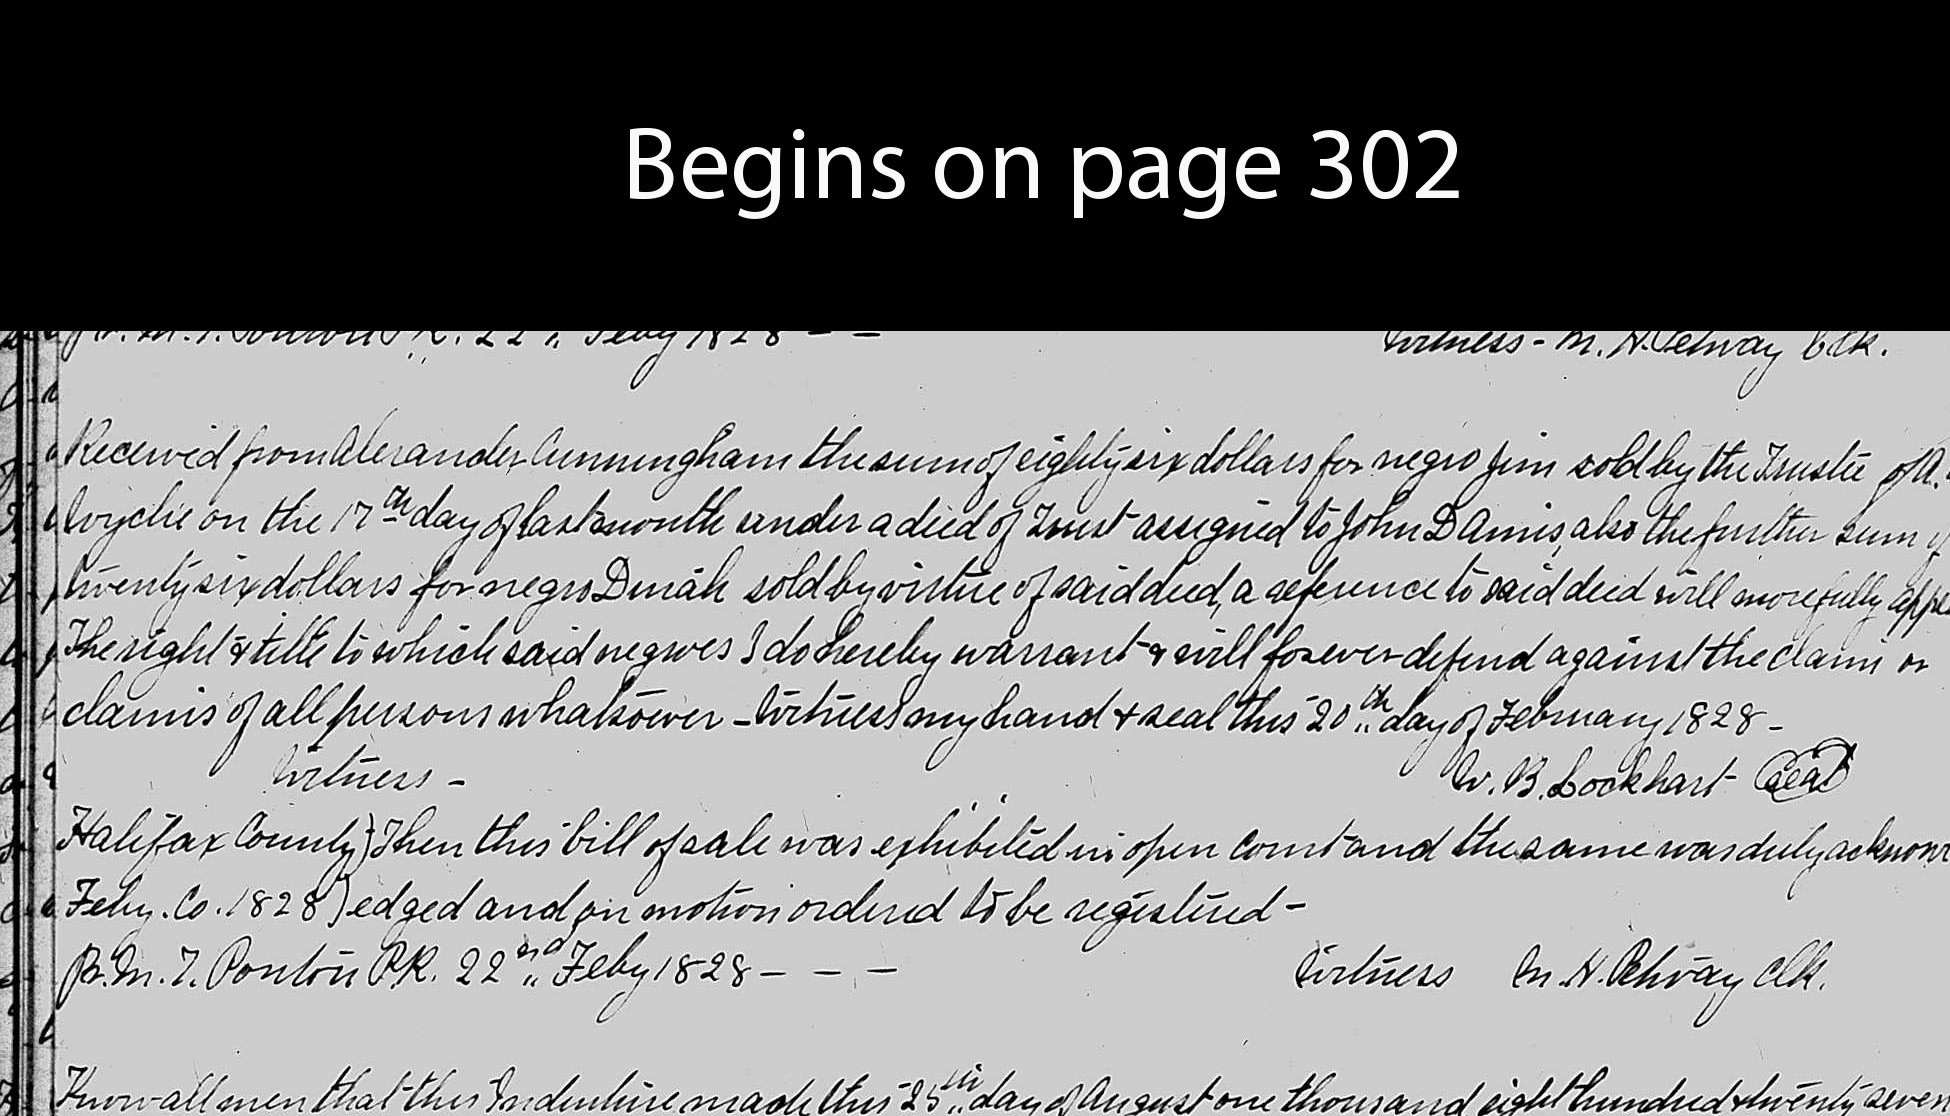 Begins on page 302
Pr. M. T. Ponton P.R. 22 " Feby 1828 - -
Witness - M. H. Pettway Clk.
Received from Alexander Cunningham the sum of eighty six dollars for negro Jim sold by the Trustee of A.
Wyche on the 17th day of last month under a deed of Trust assigned to John D Amis, also the further sum of
twenty six dollars for negro Dinah sold by virtue of said deed, a reference to said deed will more fully appe
The right & title to which said negroes I do hereby warrant & will forever defend against the claim or
claims of all persons whatsoever - Witness my hand & seal this 20th day of February 1828 -
Witness -
W. B. Lockhart Seal
Halifax County } Then this bill of sale was exhibited in open Court and the same was duly acknowl
Feby. Co. 1828 } edged and on motion ordered to be registered -
Pr. M. T. Ponton P.R. 22nd Feby 1828 - - -
Witness M. H. Pettway Clk.
Know all men that this Indenture made this 25th day of August one thousand eight hundred & twenty seven